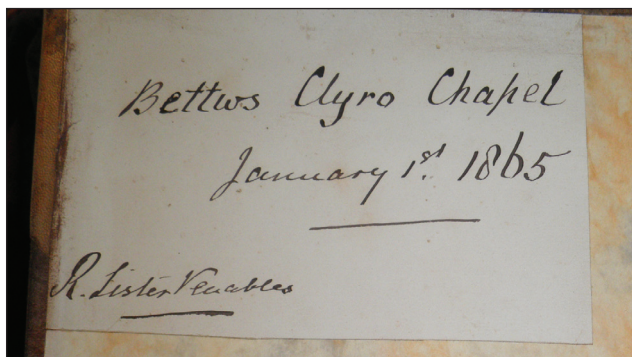 Bettws Clyro Chapel
January 1st. 1865
R. Lister Venables